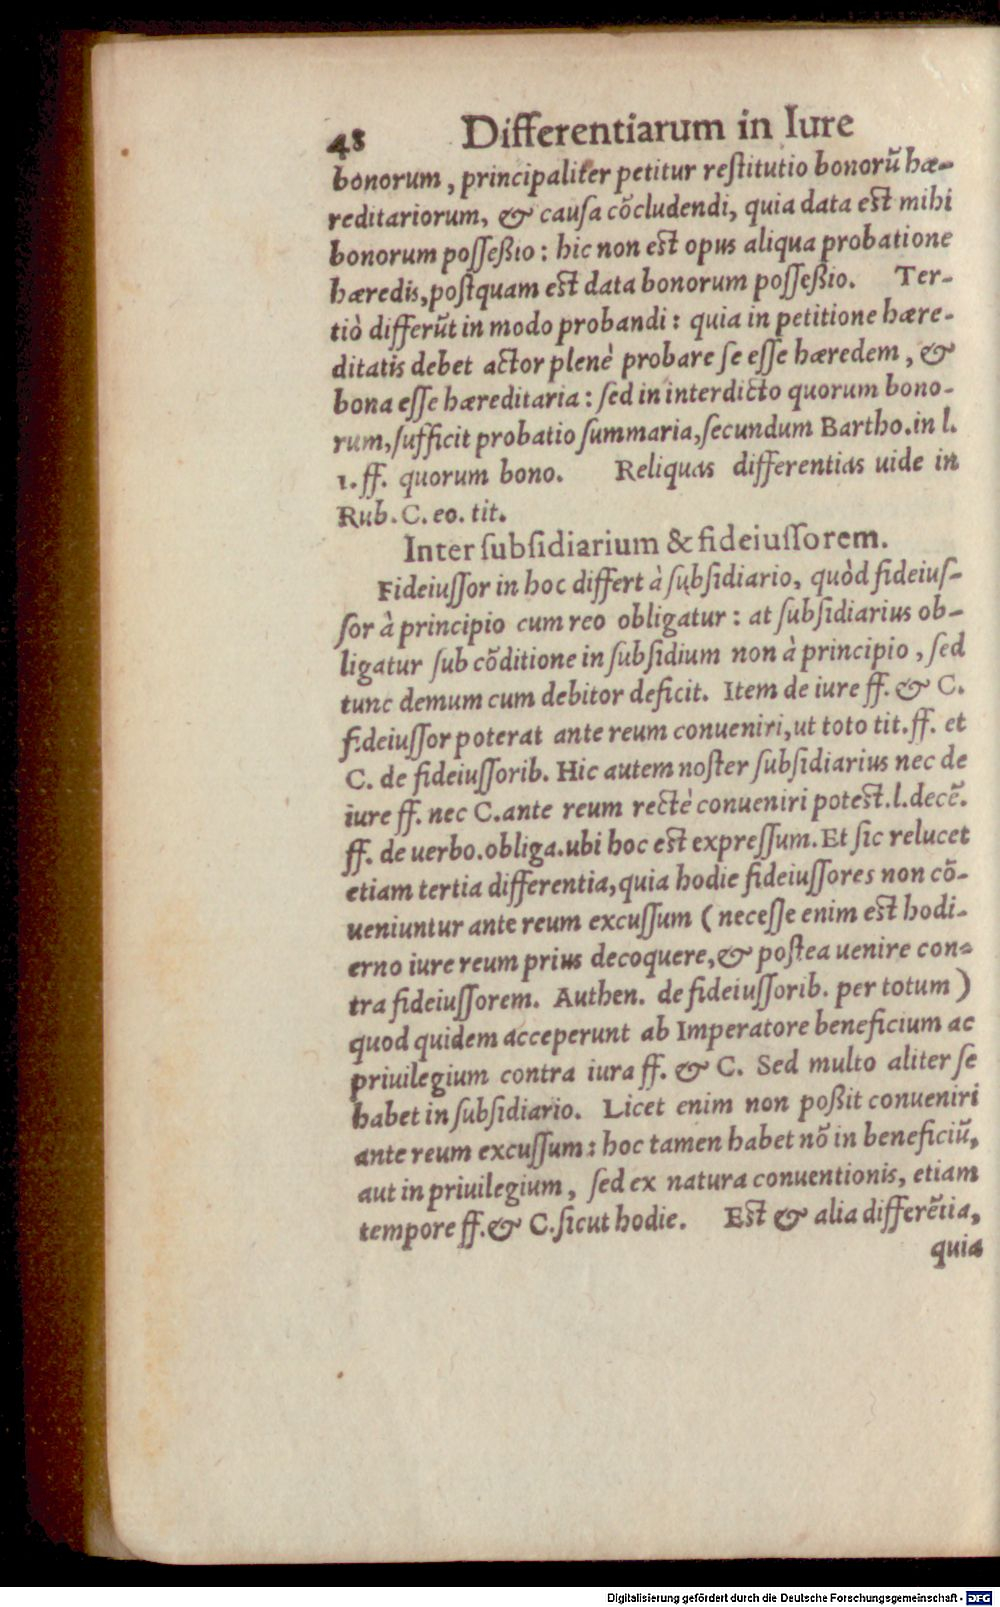 48 Differentiarum in Iure
bonorum, principaliter petitur reſtitutio bonorũ hæ-
reditariorum, & cauſa cõcludendi, quia data eſt mihi
bonorum poſſeßio: hic non eſt opus aliqua probatione
hæredis, poſtquam eſt data bonorum poſſeßio. Ter-
tiò differũt in modo probandi: quia in petitione hære-
ditatis debet actor plenè probare ſe eſſe hæredem, &
bona eſſe hæreditaria: ſed in interdicto quorum bono-
rum, ſufficit probatio ſummaria, ſecundum Bartho. in l.
1. ff. quorum bono. Reliquas differentias uide in
Rub. C. eo. tit.
Inter ſubſidiarium & fideiuſſorem.
Fideiuſſor in hoc differt à ſubſidiario, quòd fideiuſ-
ſor à principio cum reo obligatur: at ſubſidiarius ob-
ligatur ſub cõditione in ſubſidium non à principio, ſed
tunc demum cum debitor deficit. Item de iure ff. & C.
fideiuſſor poterat ante reum conueniri, ut toto tit. ff. et
C. de fideiuſſorib. Hic autem noſter ſubſidiarius nec de
iure ff. nec C. ante reum rectè conueniri poteſt. l. decẽ.
ff. de uerbo. obliga. ubi hoc eſt expreſſum. Et ſic relucet
etiam tertia differentia, quia hodie fideiuſſores non cõ-
ueniuntur ante reum excuſſum (neceſſe enim eſt hodi-
erno iure reum prius decoquere, & poſtea uenire con-
tra fideiuſſorem. Authen. de fideiuſſorib. per totum)
quod quidem acceperunt ab Imperatore beneficium ac
priuilegium contra iura ff. & C. Sed multo aliter ſe
habet in ſubſidiario. Licet enim non poßit conueniri
ante reum excuſſum: hoc tamen habet nõ in beneficiũ,
aut in priuilegium, ſed ex natura conuentionis, etiam
tempore ff. & C. ſicut hodie. Eſt & alia differẽtia,
quia
Digitalisierung gefördert durch die Deutsche Forschungsgemeinschaft - DFG